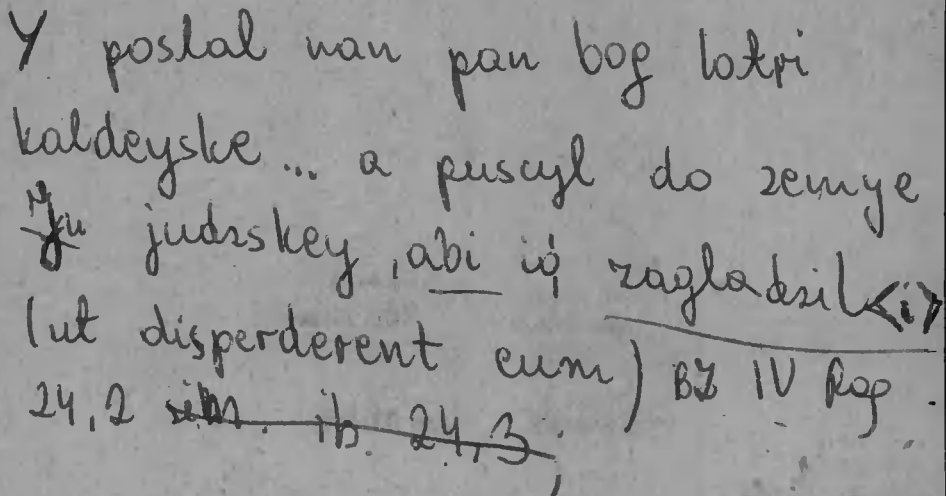 Y poslal nan pan bog lotri
kaldeyske... a puscyl do zemye
judzskey, abi iǫ zagladzil<i>
(ut disperderent eum) BZ IV Reg
24,2 sim. ib. 24,3.